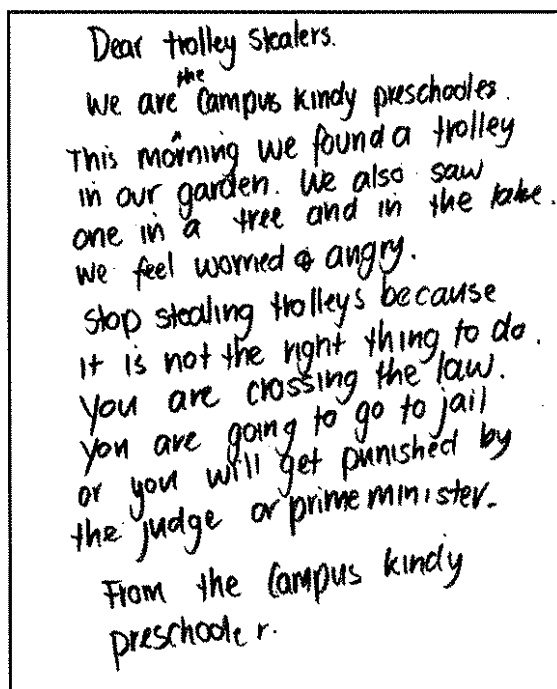 Dear trolley stealers.
We are the Campus kindy preschooles.
This morning we found a trolley
in our garden. We also saw
one in a tree and in the lake.
We feel worried & angry.
Stop stealing trolleys because
it is not the right thing to do.
You are crossing the law.
You are going to go to jail
or you will get punished by
the judge or prime minister.
From the Campus kindy
preschooler.